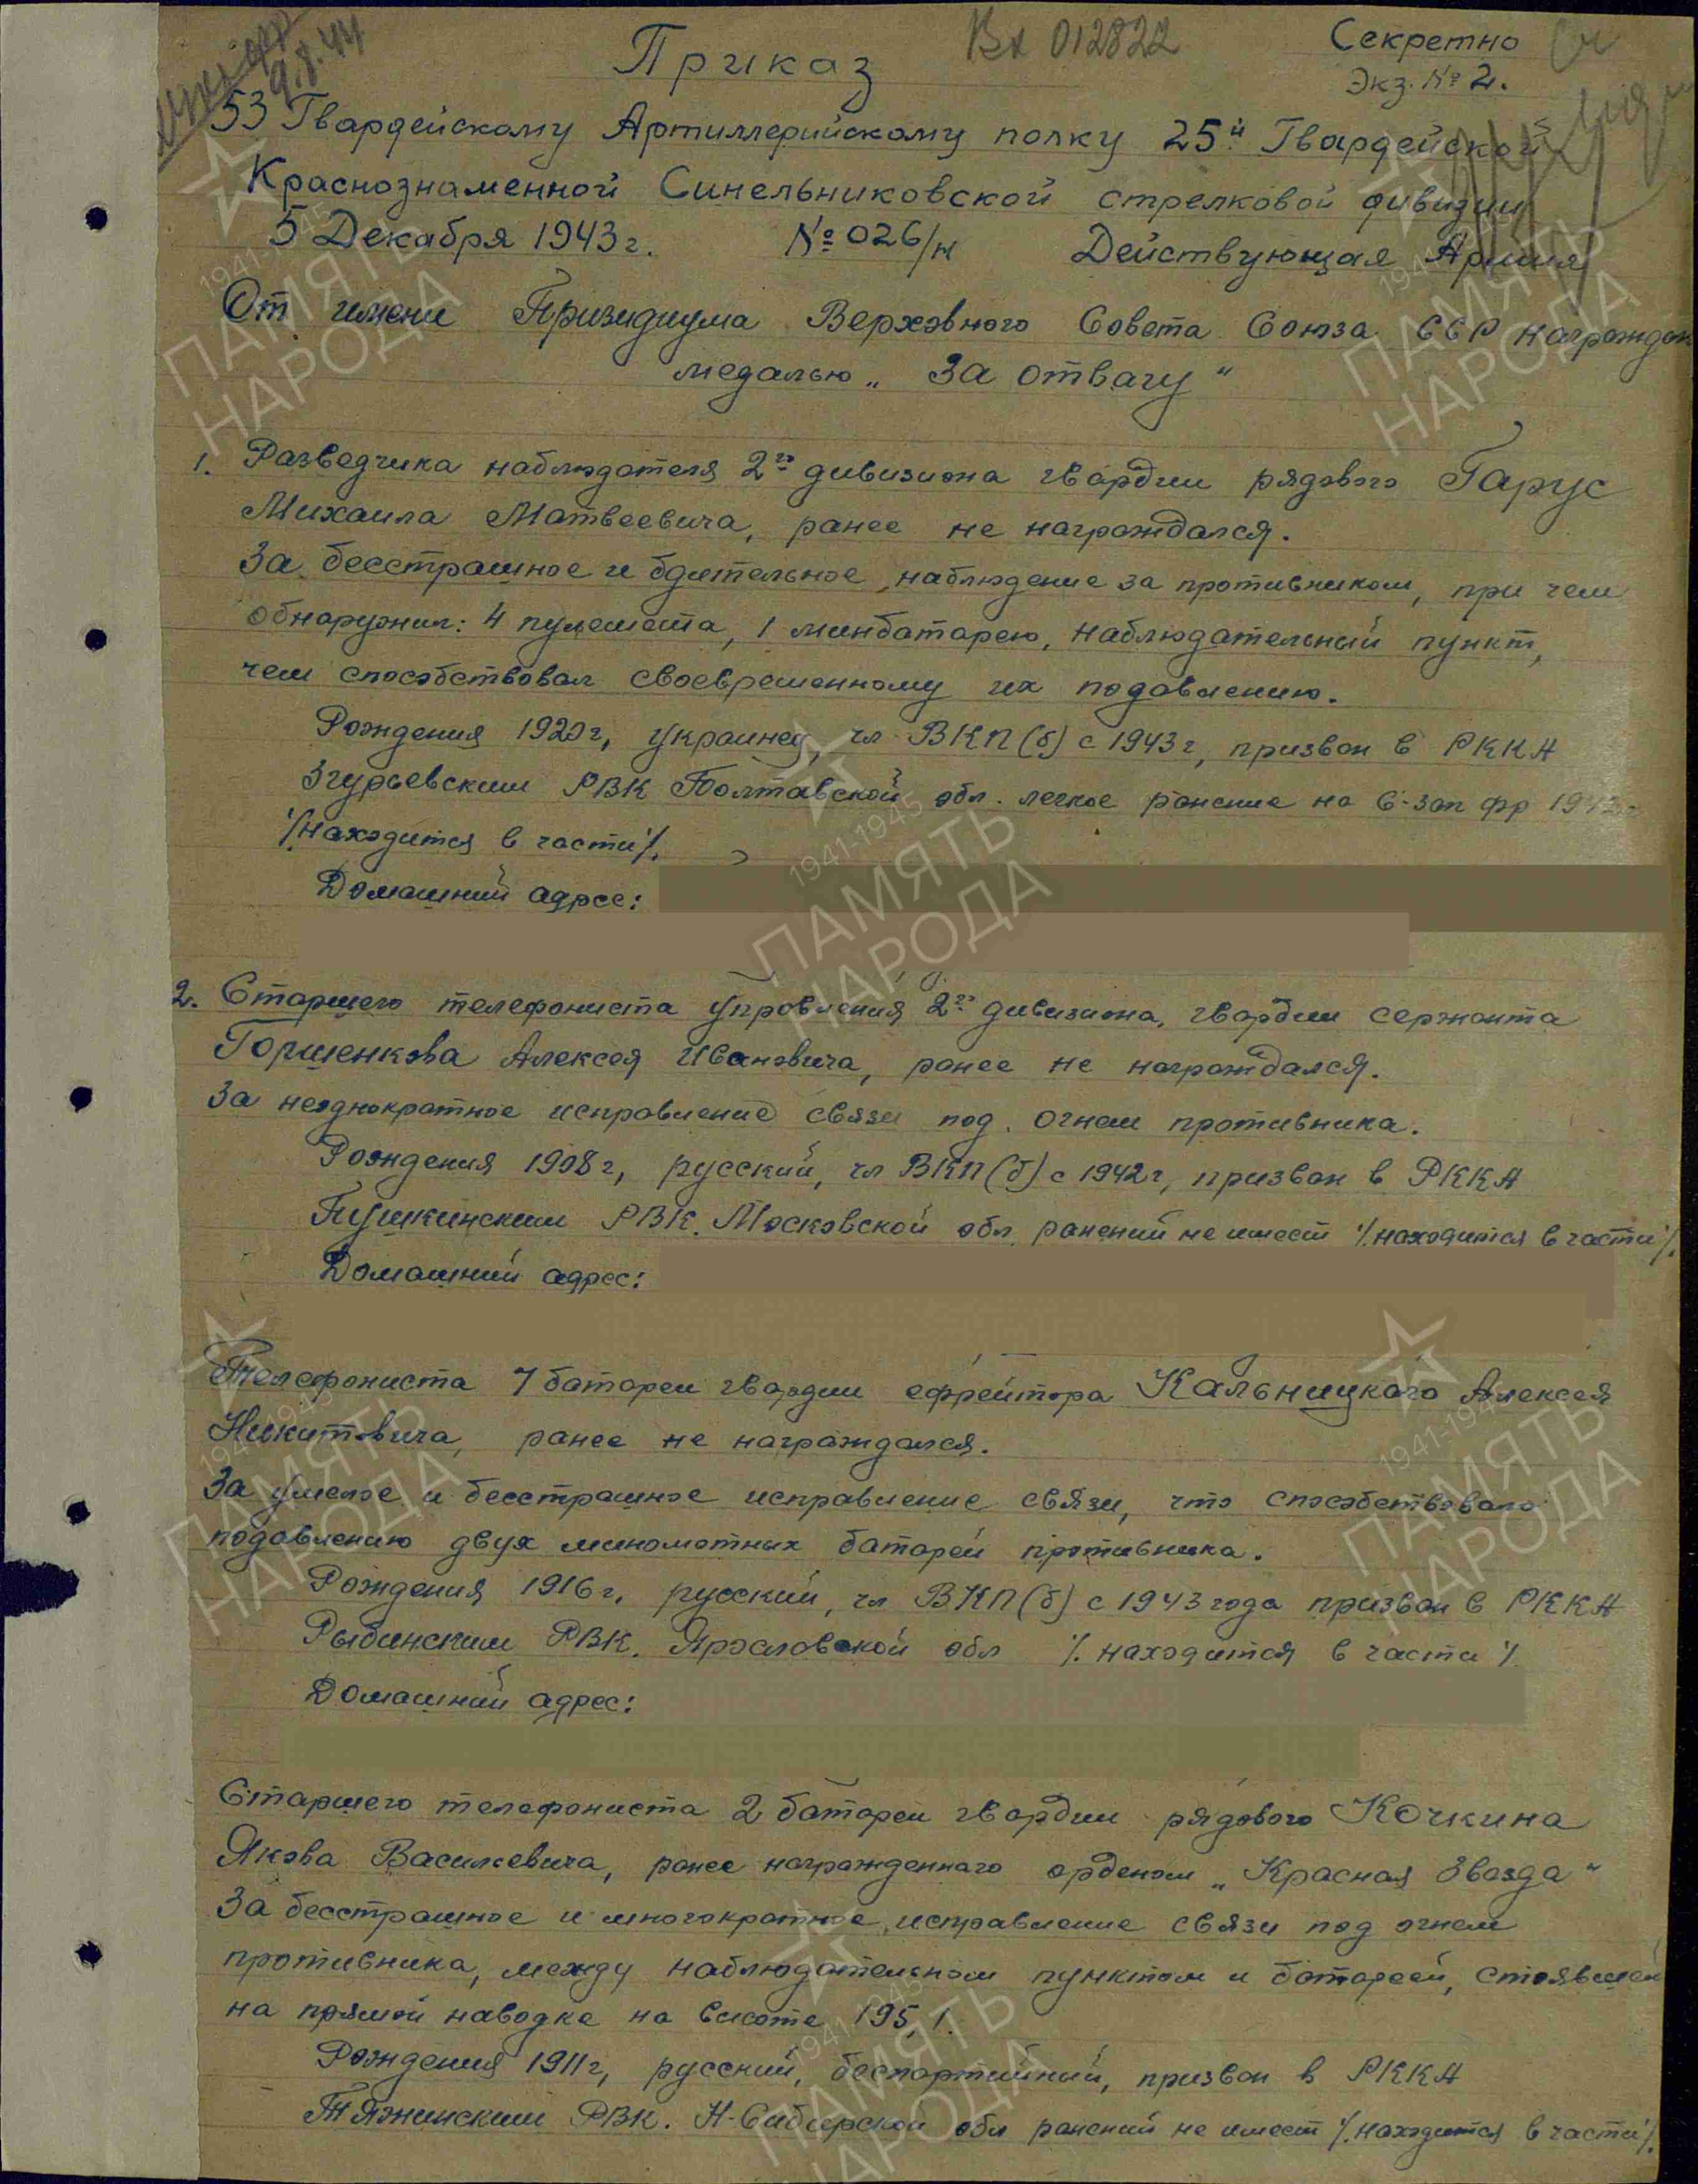 Вх 012822
Секретно
Приказ
Экз. № 2.
9.8.44
53 Гвардейскому Артиллерийскому полку 25й Гвардейской
Краснознаменной Синельниковской стрелковой дивизии
5 Декабря 1943 г. № 026/н Действующая Армия
От имени Призидиума Верховного Совета Союза ССР награждаю
медалью „ За отвагу "
1. Разведчика наблюдателя 2го дивизиона гвардии рядового Гарус
Михаила Матвеевича, ранее не награждался.
За бесстрашное и бдительное наблюдение за противником, при чем
обнаружил: 4 пулемета, 1 минбатарею, наблюдательный пункт,
чем способствовал своевременному их подавлению.
Рождения 1920 г, украинец, чл ВКП(б) с 1943 г, призван в РККА
Згурьевским РВК Полтавской обл. легкое ранение на С-зап фр 1942 г
/.находится в части/.
Домашний адрес:
2. Старшего телефониста управления 2го дивизиона, гвардии сержанта
Горшенкова Алексея Ивановича, ранее не награждался.
За неоднократное исправление связи под огнем противника.
Рождения 1908 г, русский, чл ВКП(б) с 1942 г, призван в РККА
Пушкинским РВК. Московской обл ранений не имеет /.находится в части/.
Домашний адрес:
Телефониста 7 батареи гвардии ефрейтора Кальницкого Алексея
Никитовича, ранее не награждался.
За умелое и бесстрашное исправление связи, что способствовало
подавлению двух минометных батарей противника.
Рождения 1916 г, русский, чл ВКП(б) с 1943 года призван в РККА
Рыбинским РВК. Ярославской обл /. находится в части /.
Домашний адрес:
Старшего телефониста 2 батареи гвардии рядового Кочкина
Якова Васильевича, ранее награжденнаго орденом „ Красная Звезда "
За бесстрашное и многократное исправление связи под огнем
противника, между наблюдательном пунктом и батареей, стоявшей
на прямой наводке на высоте 195,1.
Рождения 1911 г, русский, беспартийный, призван в РККА
Тяжинским РВК. Н-Сибирской обл ранений не имеет /.находится в части/.
1941-1945
ПАМЯТЬ
НАРОДА